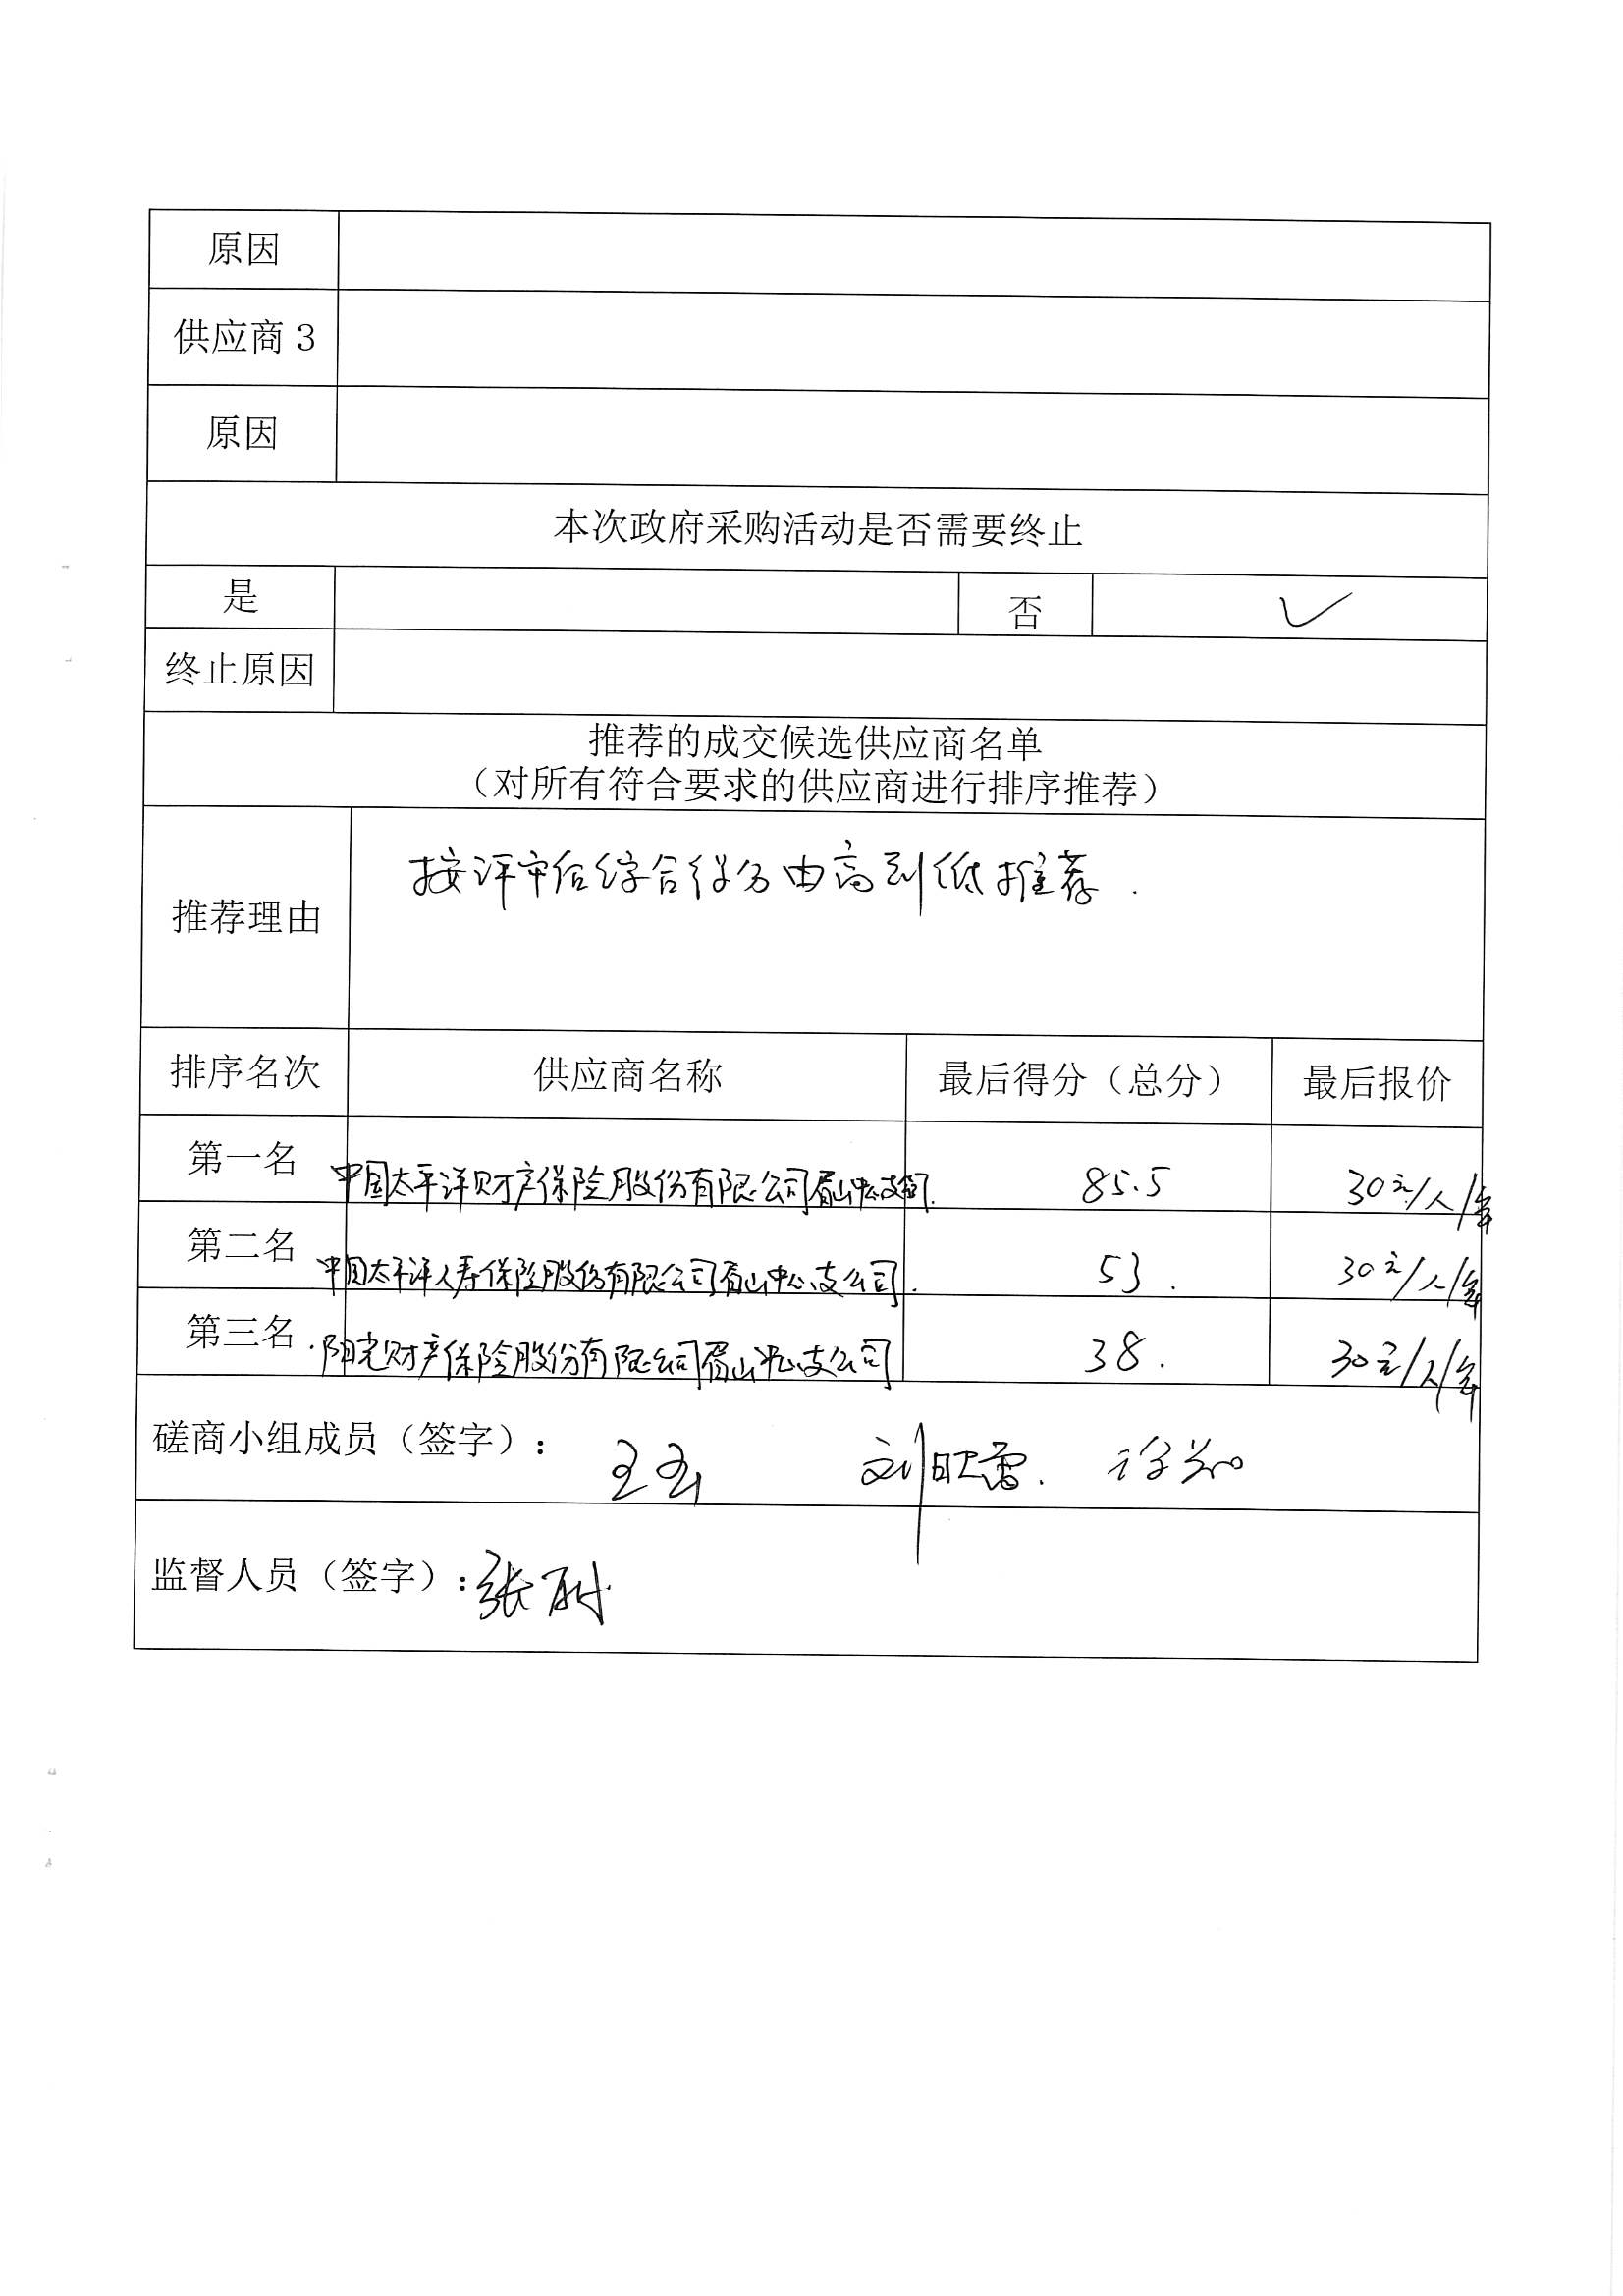 原因
供应商 3
原因
本次政府采购活动是否需要终止
是 否 ✓
终止原因
推荐的成交候选供应商名单
（对所有符合要求的供应商进行排序推荐）
推荐理由 按评审后综合得分由高到低推荐.
排序名次 供应商名称 最后得分（总分） 最后报价
第一名 中国太平洋财产保险股份有限公司眉山中心支公司. 85.5 30元/人/年
第二名 中国太平洋人寿保险股份有限公司眉山中心支公司. 53. 30元/人/年
第三名 阳光财产保险股份有限公司眉山中心支公司 38. 30元/人/年
磋商小组成员（签字）: 刘
监督人员（签字）: 张